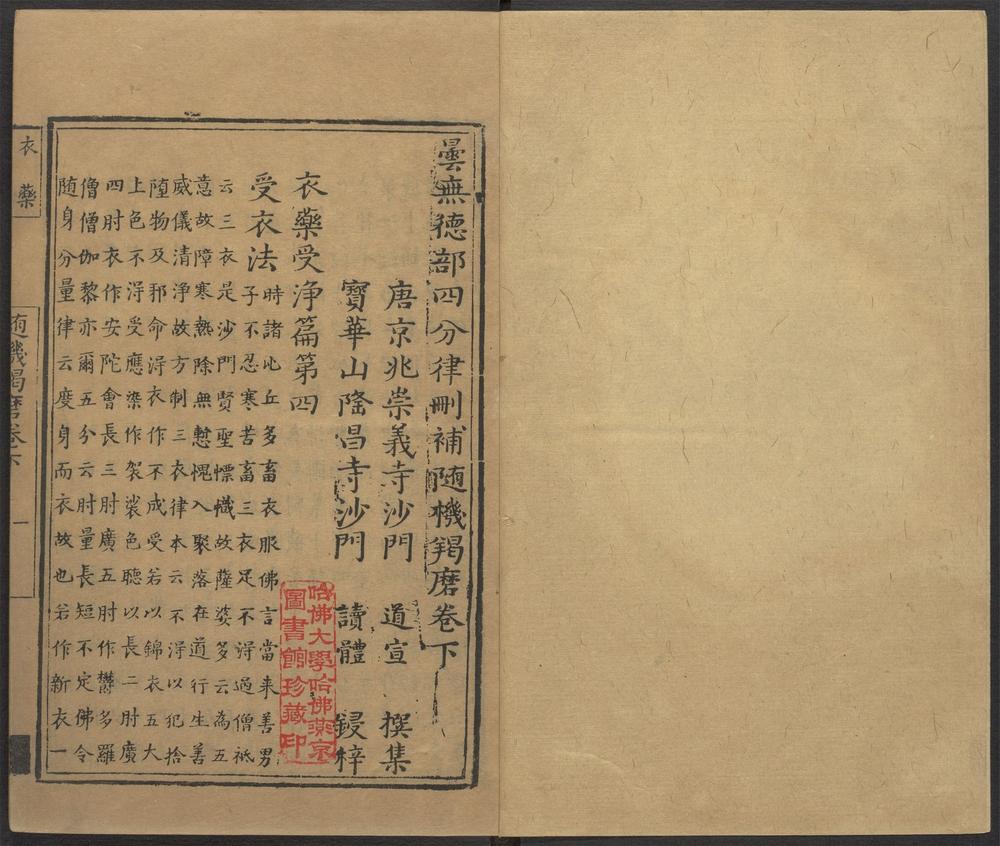 曇無德部四分律刪補隨機羯磨卷下
唐京兆崇義寺沙門 道宣 撰集
寶華山隆昌寺沙門 讀體 鋟梓
衣藥受淨篇第四
受衣法 時諸比丘多畜衣服佛言當来善男
子不忍寒苦畜三衣足不淂過僧祇
云三衣是沙門賢聖幖幟故薩婆多云為五
意故障寒熱除無慙愧入聚落在道行生善
威儀清淨故方制三衣律本云不淂以犯捨
墮物及邪命淂衣作不成受若以錦衣五大
上色不淂受應染作袈裟色聽以長二肘廣
四肘衣作安陀會長三肘廣五肘作欝多羅
僧僧伽黎亦爾五分云肘量長短不定佛令
随身分量律云度身而衣故也若作新衣一
衣藥
随機羯磨卷下
一
哈佛大學哈佛燕京
圖書館珍藏印